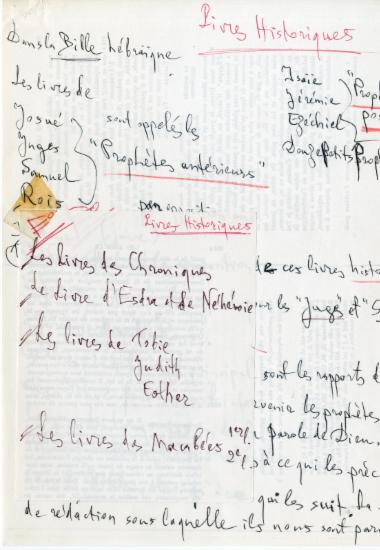 Livres Historiques
Dans la Bille hébraïque
Les livres de
Josué
Juges
Samuel
Rois
sont appelés les
"Prophètes antérieurs"
Isaïe
Jérémie
Ezéchiel
Douze petits proph
"Proph
pos
Livres Historiques
Les Livres des Chroniques
Le Livre d'Esdra et de Néhémie
Les livres de Tobie
Judith
Esther
Les livres des Maccabées 1er
2e
de ces livres histo
les "Juges" et "S
sont les rapports d
venir les prophètes
parole de Dieu
à ce qui les préc
qui les suit. La
de rédaction sous laquelle ils nous sont par